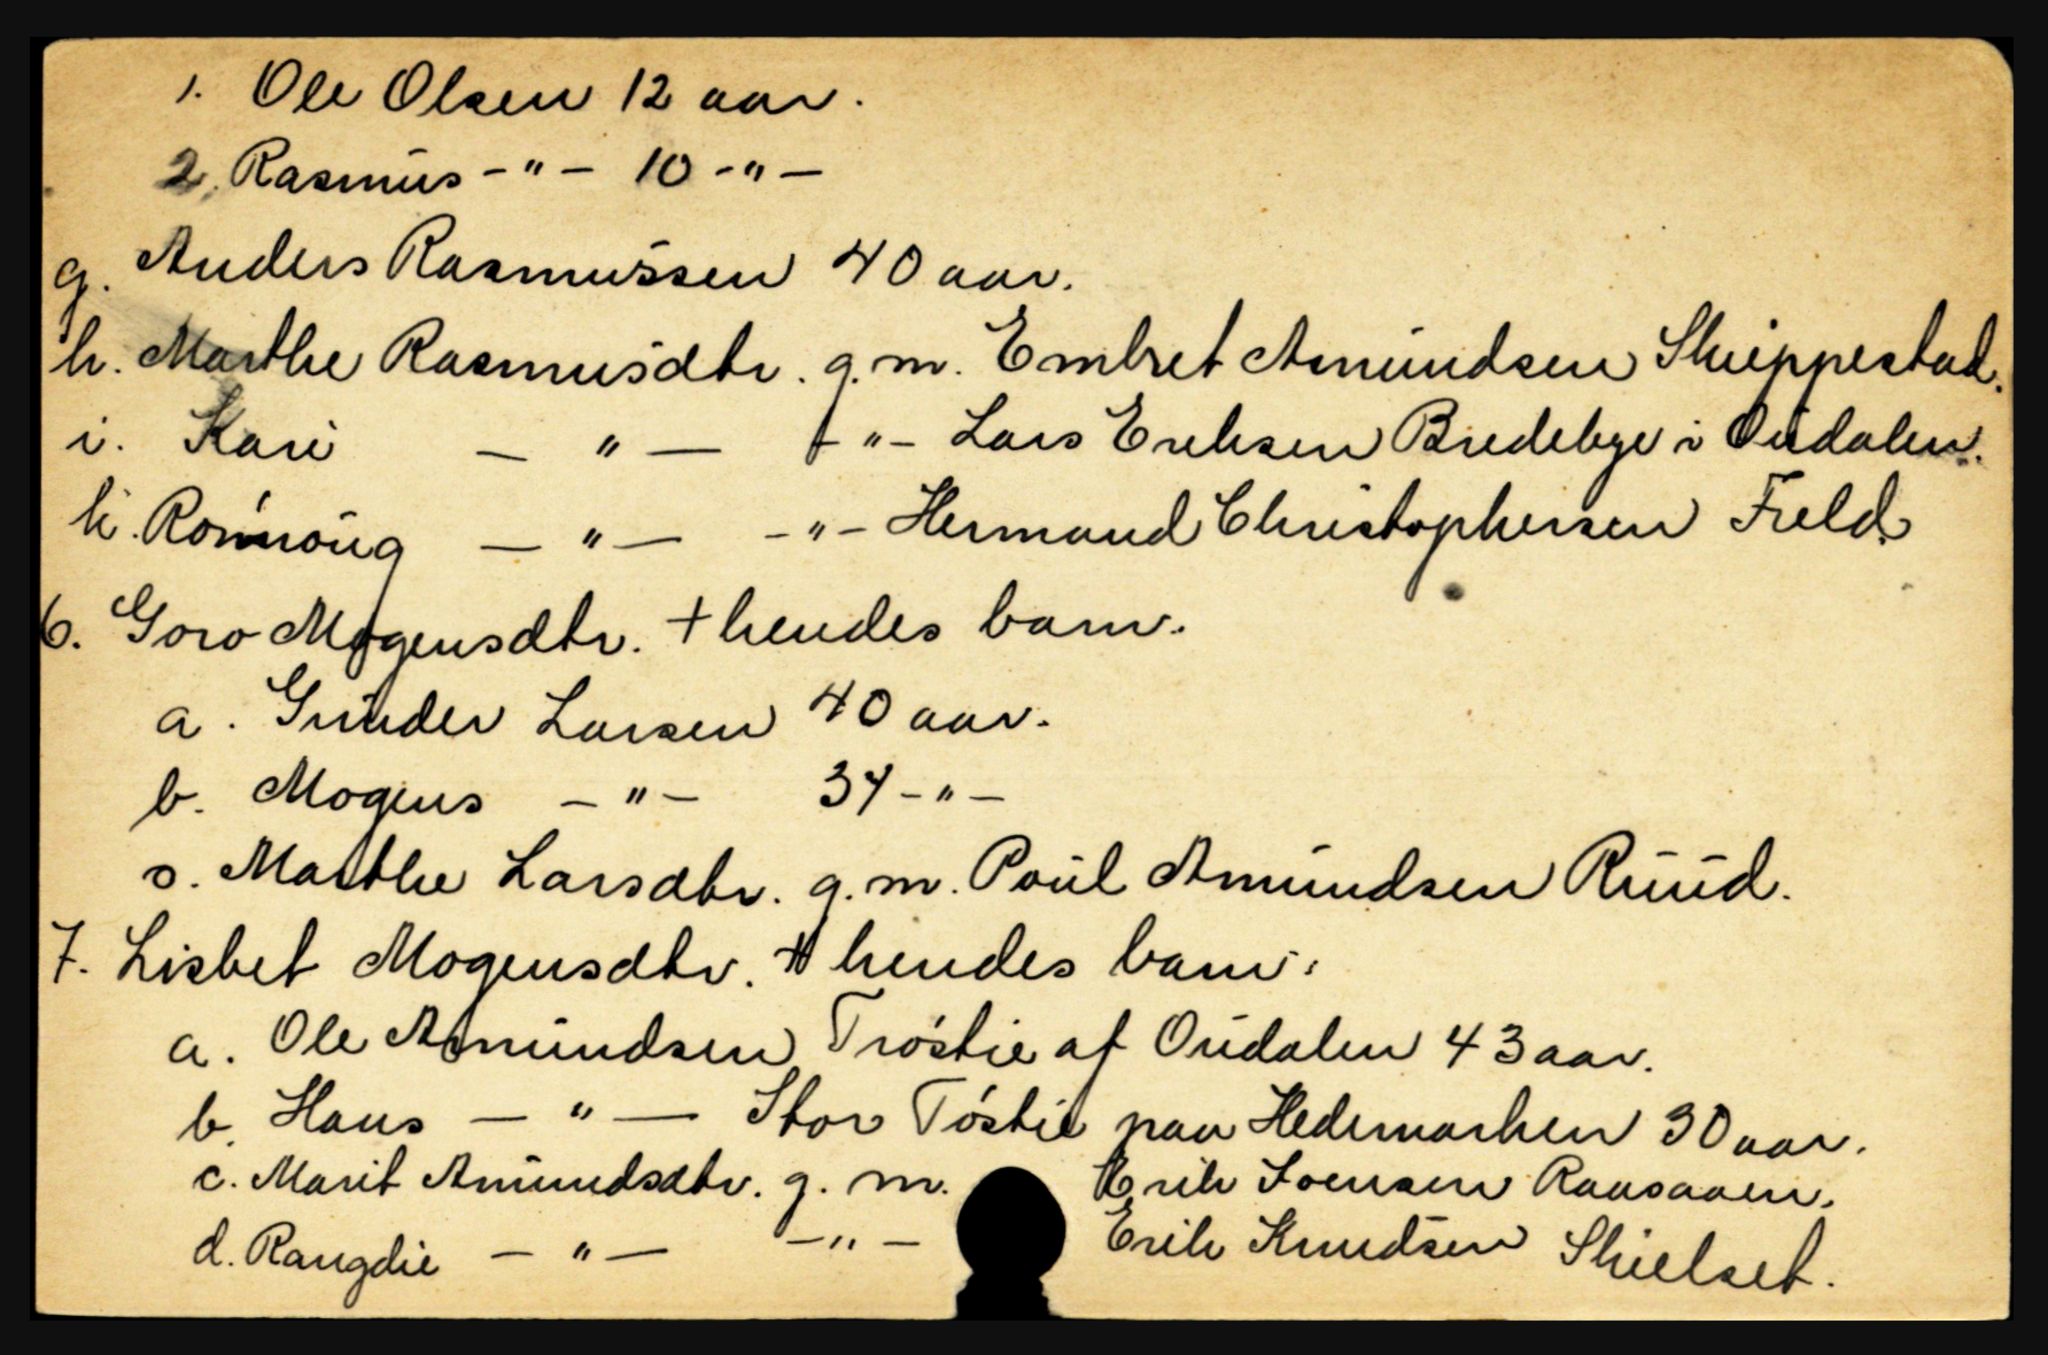 1. Ole Olsen 12 aar.
2. Rasmus -"- 10 -"-
g. Anders Rasmussen 40 aar.
h. Marthe Rasmusdtr. g.m. Embret Amundsen Skieppestad.
i. Kari - " - -"- Lars Eriksen Bredebye i Oudalen.
k. Ronnoug - " - -"- Hermand Christophersen Field.
6. Goro Mogensdtr. + hendes barn.
a. Gunder Larsen 40 aar.
b. Mogens -"- 34 -"-
c. Marthe Larsdtr. g.m. Poul Amundsen Ruud.
7. Lisbet Mogensdtr. + hendes barn:
a. Ole Amundsen Tróstie af Oudalen 43 aar.
b. Hans - " - Stor Tóstie paa Hedemarken 30 aar.
c. Marit Amundsdtr. g. m. Erik Joensen Raasaaen.
d. Rangdie - " - -"- Erik Knudsen Skielset.